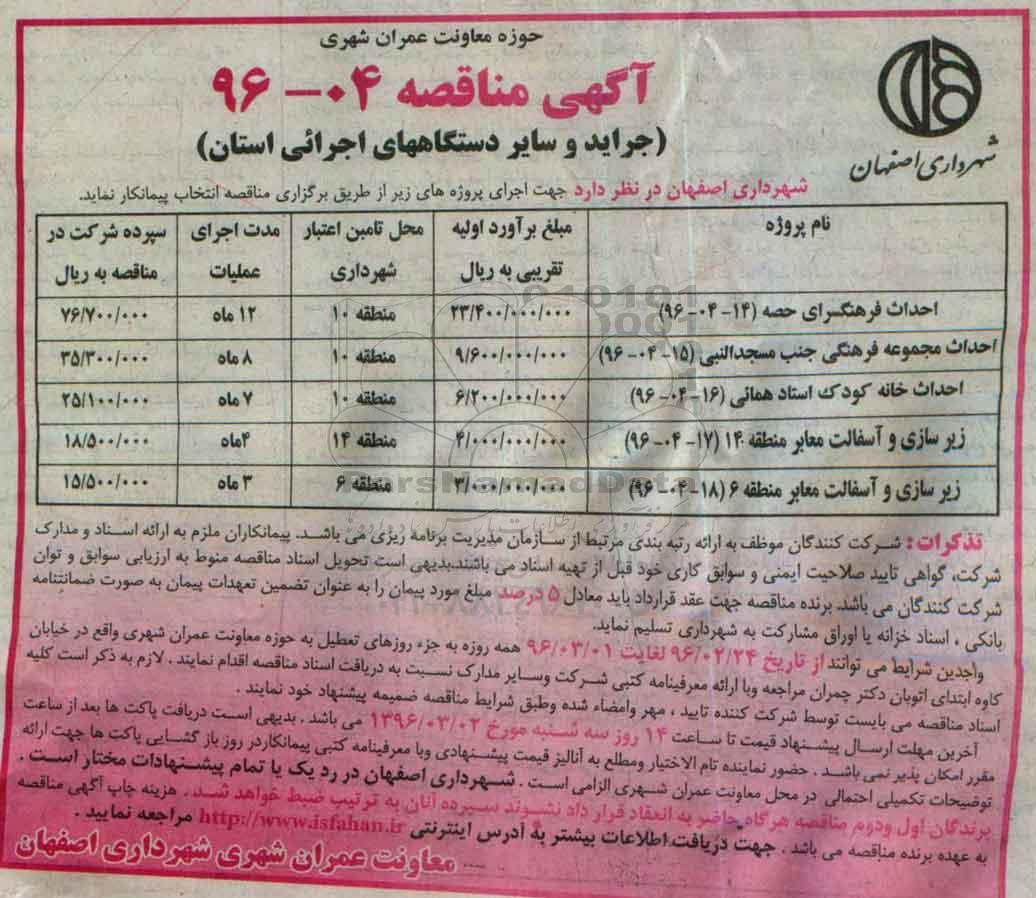 حوزه معاونت عمران شهری
آگهی مناقصه ۰۴-۹۶
(جراید و سایر دستگاههای اجرائی استان)
شهرداری اصفهان
شهرداری اصفهان در نظر دارد جهت اجرای پروژه های زیر از طریق برگزاری مناقصه انتخاب پیمانکار نماید.
نام پروژه | مبلغ برآورد اولیه تقریبی به ریال | محل تامین اعتبار شهرداری | مدت اجرای عملیات | سپرده شرکت در مناقصه به ریال
احداث فرهنگسرای حصه (۱۴-۰۴-۹۶) | ۲۳/۴۰۰/۰۰۰/۰۰۰ | منطقه ۱۰ | ۱۲ ماه | ۷۶/۷۰۰/۰۰۰
احداث مجموعه فرهنگی جنب مسجدالنبی (۱۵-۰۴-۹۶) | ۹/۶۰۰/۰۰۰/۰۰۰ | منطقه ۱۰ | ۸ ماه | ۳۵/۳۰۰/۰۰۰
احداث خانه کودک استاد همائی (۱۶-۰۴-۹۶) | ۶/۲۰۰/۰۰۰/۰۰۰ | منطقه ۱۰ | ۷ ماه | ۲۵/۱۰۰/۰۰۰
زیر سازی و آسفالت معابر منطقه ۱۴ (۱۷-۰۴-۹۶) | ۴/۰۰۰/۰۰۰/۰۰۰ | منطقه ۱۴ | ۴ماه | ۱۸/۵۰۰/۰۰۰
زیر سازی و آسفالت معابر منطقه ۶ (۱۸-۰۴-۹۶) | ۳/۰۰۰/۰۰۰/۰۰۰ | منطقه ۶ | ۳ ماه | ۱۵/۵۰۰/۰۰۰
تذکرات: شرکت کنندگان موظف به ارائه رتبه بندی مرتبط از سازمان مدیریت برنامه ریزی می باشد. پیمانکاران ملزم به ارائه اسناد و مدارک
شرکت، گواهی تایید صلاحیت ایمنی و سوابق کاری خود قبل از تهیه اسناد می باشند.بدیهی است تحویل اسناد مناقصه منوط به ارزیابی سوابق و توان
شرکت کنندگان می باشد. برنده مناقصه جهت عقد قرارداد باید معادل ۵ درصد مبلغ مورد پیمان را به عنوان تضمین تعهدات پیمان به صورت ضمانتنامه
بانکی ، اسناد خزانه یا اوراق مشارکت به شهرداری تسلیم نماید.
واجدین شرایط می توانند از تاریخ ۹۶/۰۲/۲۴ لغایت ۹۶/۰۳/۰۱ همه روزه به جزء روزهای تعطیل به حوزه معاونت عمران شهری واقع در خیابان
کاوه ابتدای اتوبان دکتر چمران مراجعه وبا ارائه معرفینامه کتبی شرکت وسایر مدارک نسبت به دریافت اسناد مناقصه اقدام نمایند . لازم به ذکر است کلیه
اسناد مناقصه می بایست توسط شرکت کننده تایید ، مهر وامضاء شده وطبق شرایط مناقصه ضمیمه پیشنهاد خود نمایند .
آخرین مهلت ارسال پیشنهاد قیمت تا ساعت ۱۴ روز سه شنبه مورخ ۱۳۹۶/۰۳/۰۲ می باشد . بدیهی است دریافت پاکت ها بعد از ساعت
مقرر امکان پذیر نمی باشد . حضور نماینده تام الاختیار ومطلع به آنالیز قیمت پیشنهادی وبا معرفینامه کتبی پیمانکاردر روز باز گشایی پاکت ها جهت ارائه
توضیحات تکمیلی احتمالی در محل معاونت عمران شهری الزامی است . شهرداری اصفهان در رد یک یا تمام پیشنهادات مختار است .
برندگان اول ودوم مناقصه هرگاه حاضر به انعقاد قرار داد نشوند سپرده آنان به ترتیب ضبط خواهد شد . هزینه چاپ آگهی مناقصه
به عهده برنده مناقصه می باشد . جهت دریافت اطلاعات بیشتر به آدرس اینترنتی http://www.isfahan.ir مراجعه نمایید .
معاونت عمران شهری شهرداری اصفهان